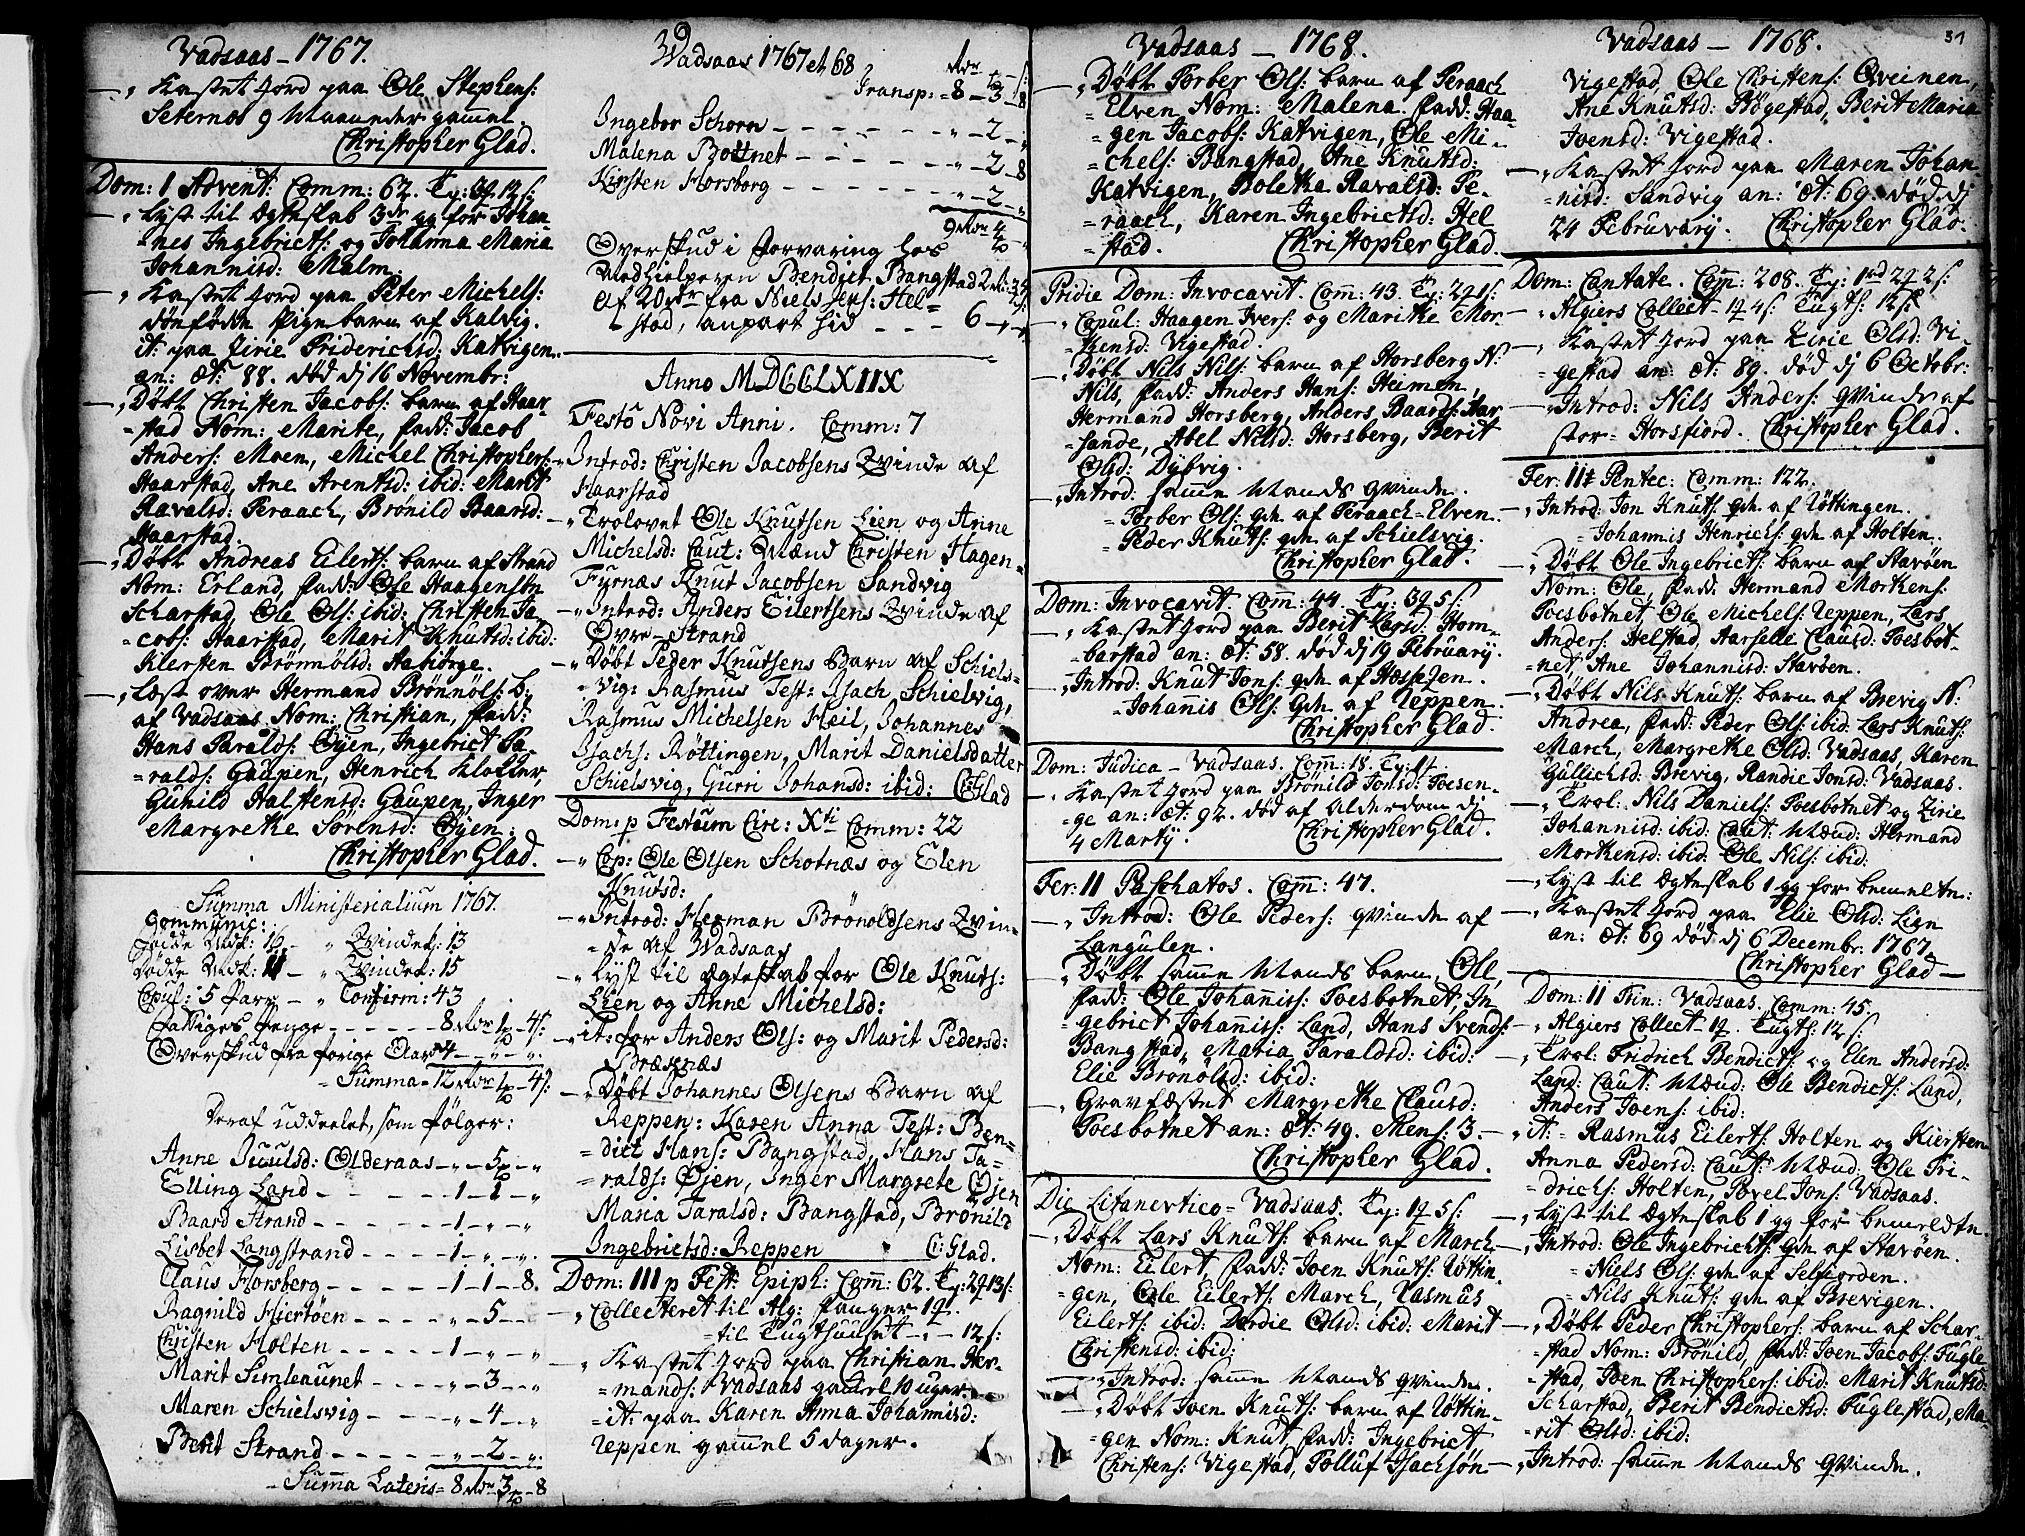 Vadsaas - 1767.
„ Kastet Jord paa Ole Stephens:
Seternes 9 Maaneder gammel.
Christopher Glad.
Dom: 1 Advent: Comm: 62.
„ Lyst til Ægteskab 3de gg for Johan-
=nes Ingebricts: og Johanna Maria
Johannisd: Malm.
„ Kastet Jord paa Peter Michels:
dönfödde Pigebarn af Kalvig.
it: paa Zirie Friderichsd: Katvigen
an: æt: 88. död dj 16 Novembr:
„ Döbt Christen Jacobs: barn af Haar-
=stad Nom: Marite, fadd: Jacob
Anders: Moen, Michel Christophers:
Haarstad, Ane Arentsd: ibid: Marit
Ravalsd: Peraach, Brönild Baarsd:
Haarstad.
„ Döbt Andreas Eilerts: barn af Strand
Nom: Erland, fadd: Ole Haagensen
Scharstad, Ole Ols: ibid: Christen Ja-
=cobs: Haarstad, Marit Knutsd: ibid:
Kiersten Brönnölsd: Aabiörge.
„ Læst over Hermand Brönnöls: b:
af Vadsaas Nom: Christian, fadd:
Hans Taralds: Öyen, Ingebrict Ta-
=ralds: Gaupen, Henrich Klocker,
Gunild Halstensd: Gaupen, Inger
Margrethe Sörensd: Öyen.
Christopher Glad.
Summa Ministerialium 1767.
Communic:
Födde Mdk: 16 - „ Qvindek: 13
Dödde Mdk: 11 - „ Qvindek: 15
Copul: 5 Parr - „ Confirm: 43
Fattiges Penge - - - 8
Overskud fra forige Aar 4 - „ - „
Summa = 12
Deraf uddeelet, som fölger:
Anne Juulsd: Olderaas - „ - 5 - „
Elling Land - - - 1 - 1 - „
Baard Strand - - - 1 - „ - „
Lisbet Langstrand - - - 1 - „ - „
Claus Horsberg - - - 1 - 1 - 8.
Ragnild Hiertöen - - - „ - 5 - -
Christen Holten - - - 1 - „ - „
Marit Simleaunet - - - „ - 3 - „
Maren Schielsvig - - - „ - 4 - „
Berit Strand - - - „ - 2 - „
Summa Lateris = 8 - 3 - 8
Wadsaas 1767 et 68
Transp: = 8 - 3 - 8
Ingebor Schorn - - - „ - 2 - „
Malena Bottnet - - - „ - 2 - 8
Kirsten Horsborg - - - „ - 2 - „
Overskud i forvaring hos
Medhielperen Bendict Bangstad
Af 20 fra Niels Jens: Hel=
stad, anpart hid - - - 6 - „ - „
Anno MDCCLXIIX
Festo Novi Anni. Comm: 7
„ Introd: Christen Jacobsens Qvinde af
Haarstad
„ Trolovet Ole Knutsen Lien og Anne
Michelsd: Caut: Mænd Christen Hagen
Fyrnæs Knut Jacobsen Sandvig
„ Introd: Anders Eilertsens Qvinde af
Över-Strand
„ Döbt Peder Knutsens Barn af Schiels=
=vig: Rasmus Test: Isach Schielvig,
Rasmus Michelsen Heil, Johannes
Isachs: Röttingen, Marit Danielsdatter
Schielsvig, Gurri Johansd: ibid: C: Glad
Dom: p Festum Circ: Xti Comm: 22
„ Cop: Ole Olsen Schotnæs og Elen
Knutsd:
„ Introd: Herman Brönoldsens Qvin=
=de af Wadsaas
„ Lyst til Ægteskab for Ole Knuts:
Lien og Anne Michelsd:
„ it: for Anders Ols: og Marit Pedersd:
Bræsnæs
„ Döbt Johannes Olsens Barn af
Reppen: Karen Anna Test: Ben=
=dict Hans: Bangstad, Hans Ta=
=ralds: Øjen, Inger Margrete Øjen
Maria Taralsd: Bangstad, Brönild
Ingebrictsd: Reppen C: Glad.
Dom: III p Fest: Epiph: Comm: 62.
„ Collecteret til Alg: fanger
til Tugthuuset - „ - 12 s:
„ Kastet Jord paa Christian Her-
=mands: Vadsaas gamel 10 uger
=it: paa Karen Anna Johannisd:
Reppen gammel 5 dager.
Vadsaas - 1768.
„ Döbt Torber Ols: barn af Peraach
=Elven Nom: Malena fadd: Haa=
=gen Jacobs: Katvigen, Ole Mi-
=chels: Bangstad, Ane Knutsd:
Katvigen, Boletha Ravalsd: Pe-
raach, Karen Ingebrictsd: Hel
=stad. Christopher Glad.
Pridie Dom: Invocavit. Comm: 43.
„ Copul: Haagen Ivers: og Marithe Mor-
=tensd: Vigestad.
„ Döbt Nils Nils: barn af Horsberg N:
Nils, fadd: Anders Hans: Humen,
Hermand Horsberg, Anders Baards: Har
=sande, Abel Nilsd: Horsberg, Berit
Olsd: Dybvig.
„ Introd: samme Mands qvinde.
=Torber Ols: qde af Peraach-Elven.
=Peder Knuts: qde af Schielsvig.
Christopher Glad.
Dom: Invocavit. Comm: 44.
„ Kastet Jord paa Berit Larsd: Hom-
=barstad an: æt: 58. död dj 19 February.
„ Introd: Knut Jons: qde af Hosesen.
=Johanis Ols: qde af Reppen.
Christopher Glad.
Dom: Judica - Vadsaas. Comm: 18.
„ Kastet Jord paa Brönild Jonsd: Foesen-
=ge an: æt: 92. död af Alderdom dj
4 Marty. Christopher Glad.
Fer: II Paschatos. Comm: 47.
„ Introd: Ole Peders: qvinde af
Langulen.
„ Döbt samme Mands barn, Ole,
fadd: Ole Johannis: Foesbotnet, In
gebrict Johannis: Land, Hans Svends:
Bangstad, Maria Taraldsd: ibid:
Elie Bronolsd: ibid:
„ Gravfæstet Margrethe Clausd:
Foesbotnet an: æt: 49. Mens: 3.
Christopher Glad.
Die Litanevtico = Vadsaas.
„ Döbt Lars Knuts: barn af March
Nom: Eilert, fadd: Joen Knuts: Röttin-
=gen, Ole Eilerts: March, Rasmus
Eilerts: ibid: Dordie Olsd: ibid: Marit
Christensd: ibid:
„ Introd: samme Mands qvinde.
„ Döbt Joen Knuts: barn af Röttin-
=gen Nom: Knut, fadd: Ingebrict
Christens: Vigestad, Tolluf Isachsön
Vadsaas - 1768.
Vigestad, Ole Christens: Qveinen,
Ane Knutsd: Bögestad, Berit Maria
Joensd: Vigestad.
„ Kastet Jord paa Maren Johan-
=nisd: Sandvig an: æt: 69. död dj
24 Februvary. Christopher Glad.
Dom: Cantate. Comm: 208.
„ Algiers Collect
„ Kastet Jord paa Zirie Olsd: Vi-
=gestad an: æt: 89. död dj 6 Octobr:
„ Introd: Nils Anders: qvinde af
stor = Horsfiord. Christopher Glad.
Fer: IIæ Pentec: Comm: 122.
„ Introd: Jon Knuts: qde af Röttingen.
=Johannis Henrichs: qde af Holten.
„ Döbt Ole Ingebricts: barn af Stavöen
Nom: Ole, fadd: Hermand Morkens:
Foesbotnet, Ole Michels: Reppen, Lars
Anders: Helstad, Aarselle Clausd: Foesbot-
=net Ane Johannisd: Stavöen.
„ Döbt Nils Knuts: barn af Brevig N:
Andrea, fadd: Peder Ols: ibid: Lars Knuts:
March, Margrethe Olsd: Vadsaas, Karen
Gullichsd: Brevig, Randie Jonsd: Vadsaas.
„ Trol: Nils Daniels: Foesbotnet og Zirie
Johannisd: ibid: Caut: Mænd: Hermand
Morkens: ibid: Ole Nils: ibid:
„ Lyst til Ægteskab 1 gg for bemeltn:
„ Kastet Jord paa Elie Olsd: Lien
an: æt: 69 död dj 6 Decembr: 1767.
Christopher Glad -
Dom: II Trin: Vadsaas. Comm: 45.
„ Algiers Collect
„ Trol: Fridrich Bendicts: og Elen Andersd:
Land: Caut: Mænd: Ole Bendicts: Land,
Anders Joens: ibid:
„ it: = Rasmus Eilerts: Holten og Kiersten
Anna Pedersd: Caut: Mænd: Ole Fri-
=drichs: Holten, Povel Jons: Vadsaas.
„ Lyst til Ægteskab 1 gg for bemeldtn
„ Introd: Ole Ingebricts: qde af Stavöen
=Niels Ols: qde af Selfiorden.
=Nils Knuts: qde af Brevigen.
„ Döbt Peder Christophers: barn af Schar-
=stad Nom: Brönild, fadd: Joen Jacobs: Fugle
=stad, Joen Christophers: ibid: Marit Knutsd:
Scharstad, Berit Bendictsd: Fuglestad, Ma-
=rit Olsd: ibid:
„ Introd: samme Mands qvinde.